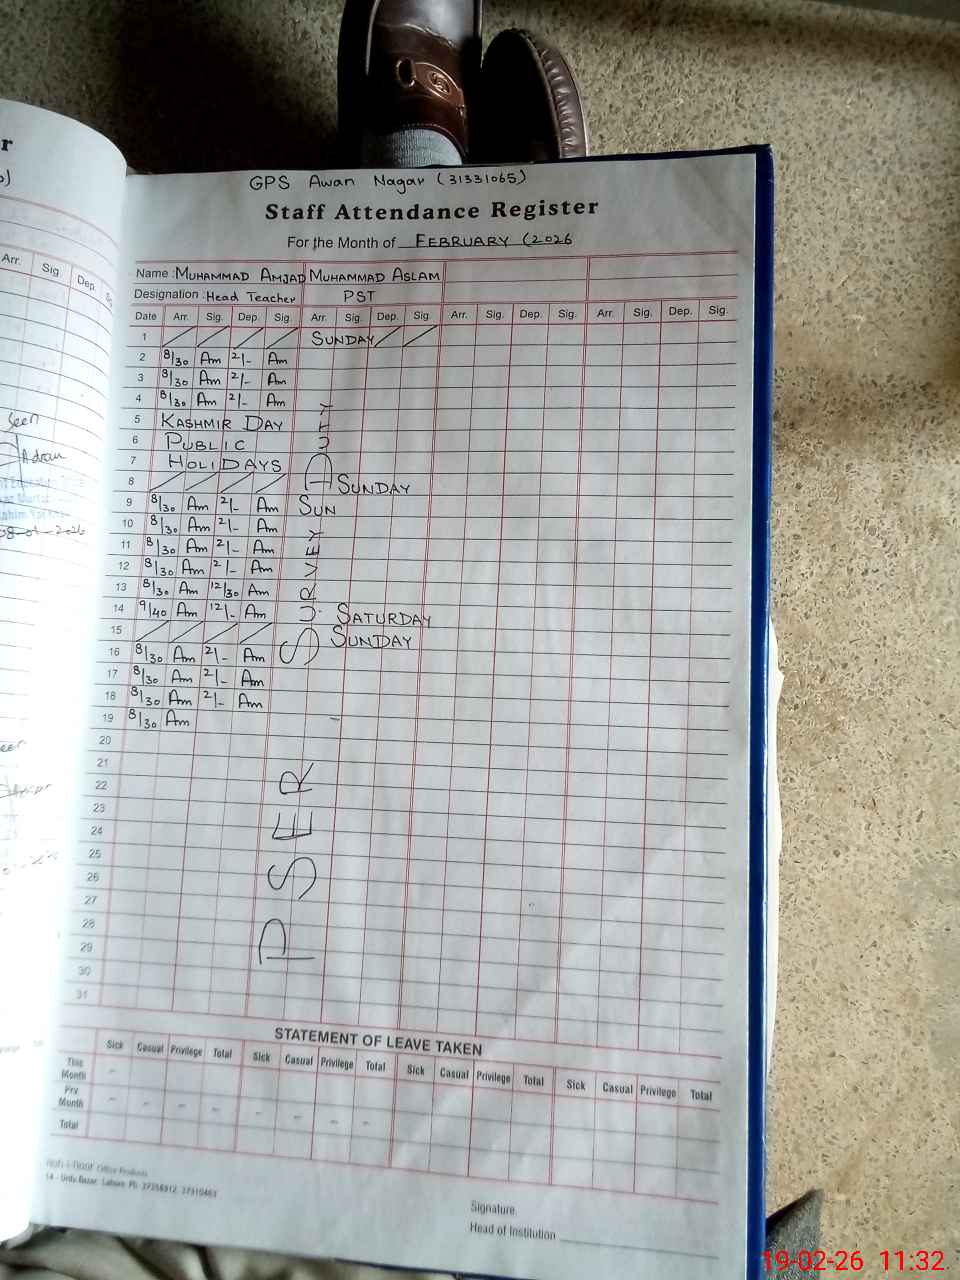 r
GPS Awan Nagar (31331065)
Staff Attendance Register
For the Month of FEBRUARY (2026
Name : MUHAMMAD AMJAD MUHAMMAD ASLAM
Designation : Head Teacher PST
Date Arr. Sig. Dep. Sig. Arr. Sig. Dep. Sig. Arr. Sig. Dep. Sig. Arr. Sig. Dep. Sig.
1 SUNDAY
2 8/30 Am 2/- Am
3 8/30 Am 2/- Am
4 8/30 Am 2/- Am
5 KASHMIR DAY
6 PUBLIC
7 HOLIDAYS
8 SUNDAY
9 8/30 Am 2/- Am SUN
10 8/30 Am 2/- Am
11 8/30 Am 2/- Am
12 8/30 Am 2/- Am
13 8/30 Am 12/30 Am
14 9/40 Am 12/- Am SATURDAY
15 SUNDAY
16 8/30 Am 2/- Am
17 8/30 Am 2/- Am
18 8/30 Am 2/- Am
19 8/30 Am
20
21
22
23
24
25
26
27
28
29
30
31
PSER SURVEY DUTY
STATEMENT OF LEAVE TAKEN
Sick Casual Privilege Total Sick Casual Privilege Total Sick Casual Privilege Total Sick Casual Privilege Total
This Month -
Prv Month - - - - - - - -
Total
Office Products
14 - Urdu Bazar, Lahore. Ph: 37358912, 37310463
Signature.
Head of Institution
Arr. Sig Dep.
Seen
19-02-26 11:32